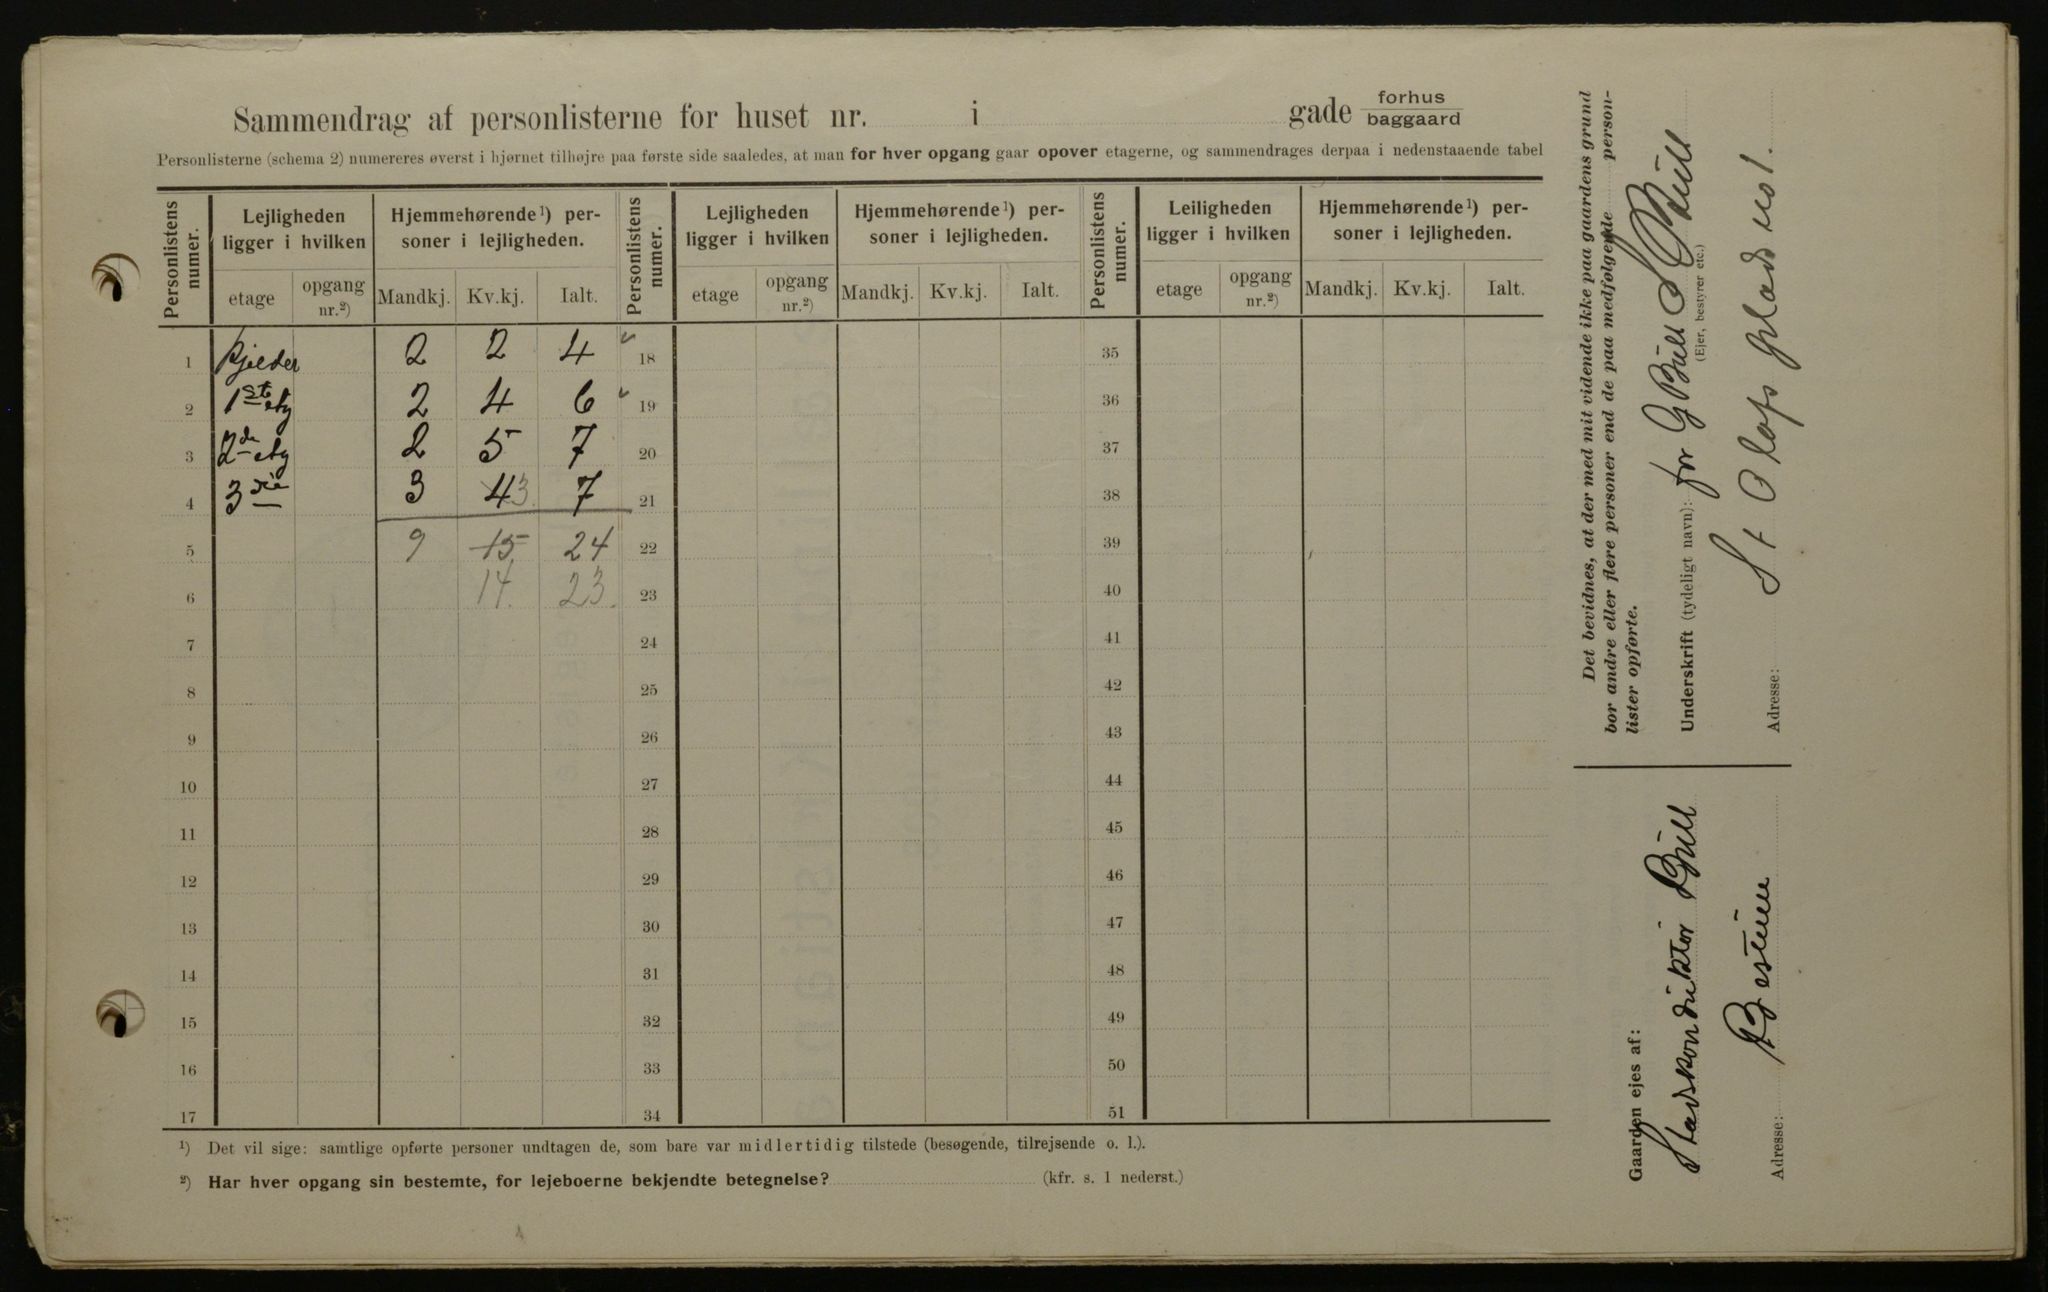 Sammendrag af personlisterne for huset nr. i gade forhus
baggaard
Personlisterne (schema 2) numereres øverst i hjørnet tilhøjre paa første side saaledes, at man for hver opgang gaar opover etagerne, og sammendrages derpaa i nedenstaaende tabel
Personlistens numer. Lejligheden ligger i hvilken Hjemmehørende¹) personer i lejligheden. Personlistens numer. Lejligheden ligger i hvilken Hjemmehørende¹) personer i lejligheden. Personlistens numer. Leiligheden ligger i hvilken Hjemmehørende¹) personer i lejligheden.
etage opgang nr.²) Mandkj. Kv.kj. Ialt. etage opgang nr.²) Mandkj. Kv.kj. Ialt. etage opgang nr.²) Mandkj. Kv.kj. Ialt.
1 Kjelder 2 2 4 18 35
2 1ste etg 2 4 6 19 36
3 2de etg 2 5 7 20 37
4 3die 3 4 3 7 21 38
5 9 15 24 22 39
6 14. 23. 23 40
7 24 41
8 25 42
9 26 43
10 27 44
11 28 45
12 29 46
13 30 47
14 31 48
15 32 49
16 33 50
17 34 51
¹) Det vil sige: samtlige opførte personer undtagen de, som bare var midlertidig tilstede (besøgende, tilrejsende o. l.).
²) Har hver opgang sin bestemte, for lejeboerne bekjendte betegnelse? (kfr. s. 1 nederst.)
Det bevidnes, at der med mit vidende ikke paa gaardens grund
bor andre eller flere personer end de paa medfølgende person-
lister opførte.
Underskrift (tydeligt navn): for G Bull S Bull
(Ejer, bestyrer etc.)
Adresse: St Olafs Plads no 1.
Gaarden ejes af:
Stadskonduktør Bull
Adresse: